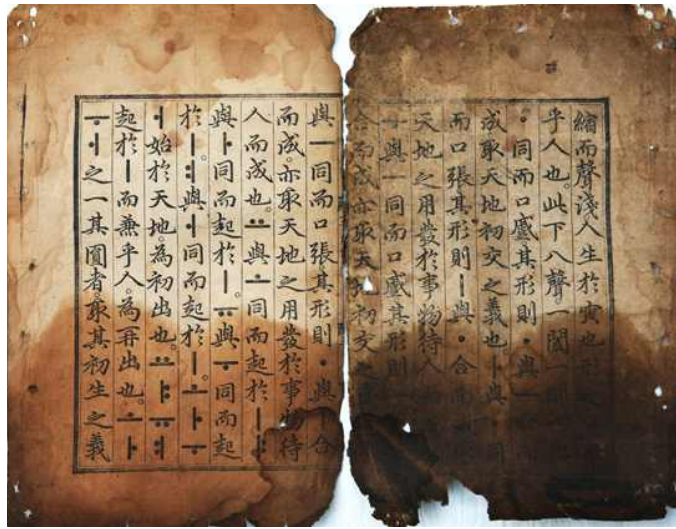 縮而聲淺人生於寅也形
乎人也。此下八聲一闔一
ㆍ同而口蹙其形則ㆍ與一
成取天地初交之義也ㅏ與 同
而口張其形則ㅣ與ㆍ合而成
天地之用發於事物待人
ㅜ與一同而口蹙其形則一
合而成亦取天地初交之
與一同而口張其形則ㆍ與ㅣ合
而成。亦取天地之用發於事物待
人而成也。ㅛ與ㅗ同而起於ㅣ。ㅑ
與ㅏ同而起於ㅣ。ㅠ與ㅜ同而起
於ㅣ。ㅕ與ㅓ同而起於ㅣ。ㅗㅏㅜ
ㅓ始於天地。為初出也。ㅛㅑㅠㅕ
起於ㅣ而兼乎人。為再出也。ㅗㅏ
ㅜㅓ之一其圓者。取其初生之義